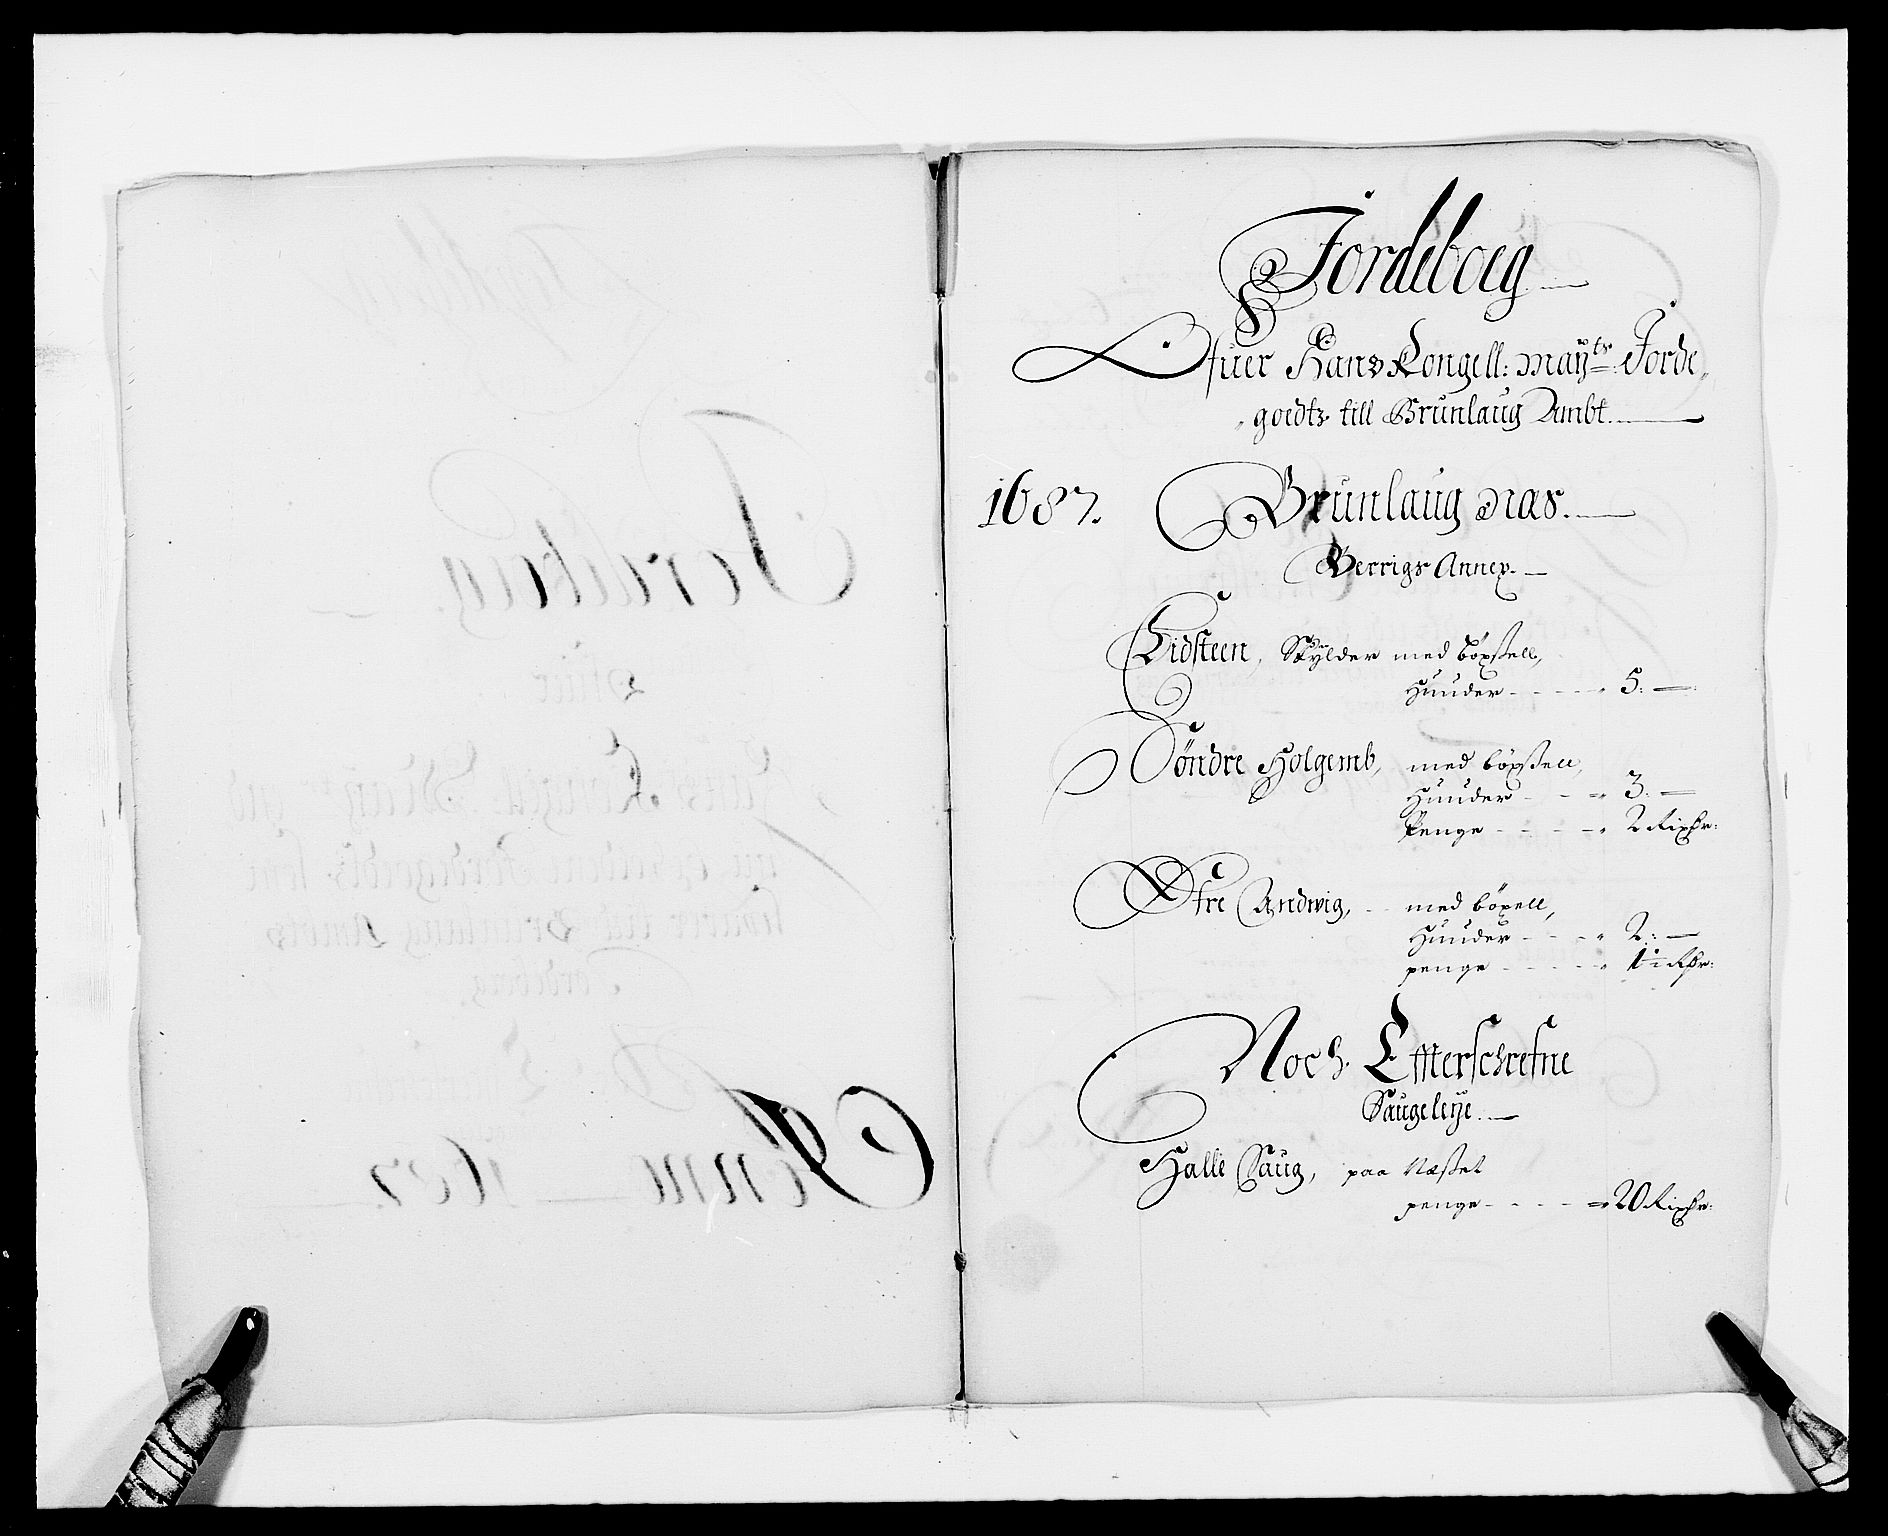 Jordeboeg
Ofuer Hans Kongell: Mayts: Jorde
goedts till Brunlaug Ambt.
1687. Brunlaug Næs.
Berrigs Annex.
Eidsteen, Skylder med böxsell,
Huuder - - - 5:
Söndre Holgemb, med böxsell,
Huuder - - - 3:
Penge - - - 2 Rixdr:
Øfre Andwig, med böxell,
Huuder - - - 2:
penge - - - 1½ Rdr:
Noch Effterschrefne
Saugeleye.
Halle Saug, paa Næsset
penge - - - 20 Rixdr: